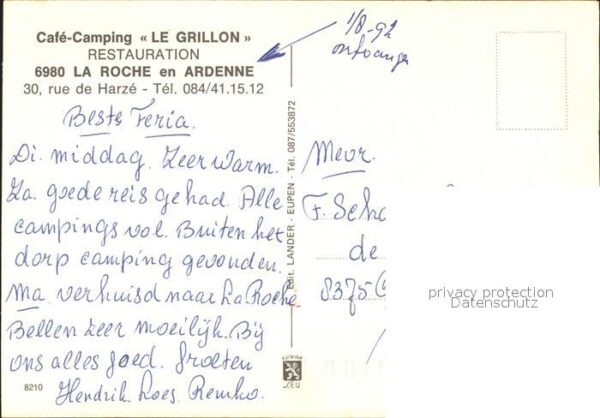 Café-Camping « LE GRILLON »
RESTAURATION
6980 LA ROCHE en ARDENNE
30, rue de Harzé - Tél. 084/41.15.12
1/8-92
ontvangen
Beste Feria.
Di. middag. Zeer warm.
Za. goede reis gehad. Alle
campings vol. Buiten het
dorp camping gevonden.
Ma. verhuisd naar La Roche
Bellen zeer moeilijk. Bij
ons alles goed. Groeten
Hendrik. Loes. Remko.
8210
Edit. LANDER - EUPEN - Tél. 087/553872
Mevr.
F. Scha
de
8375
privacy protection
Datenschutz